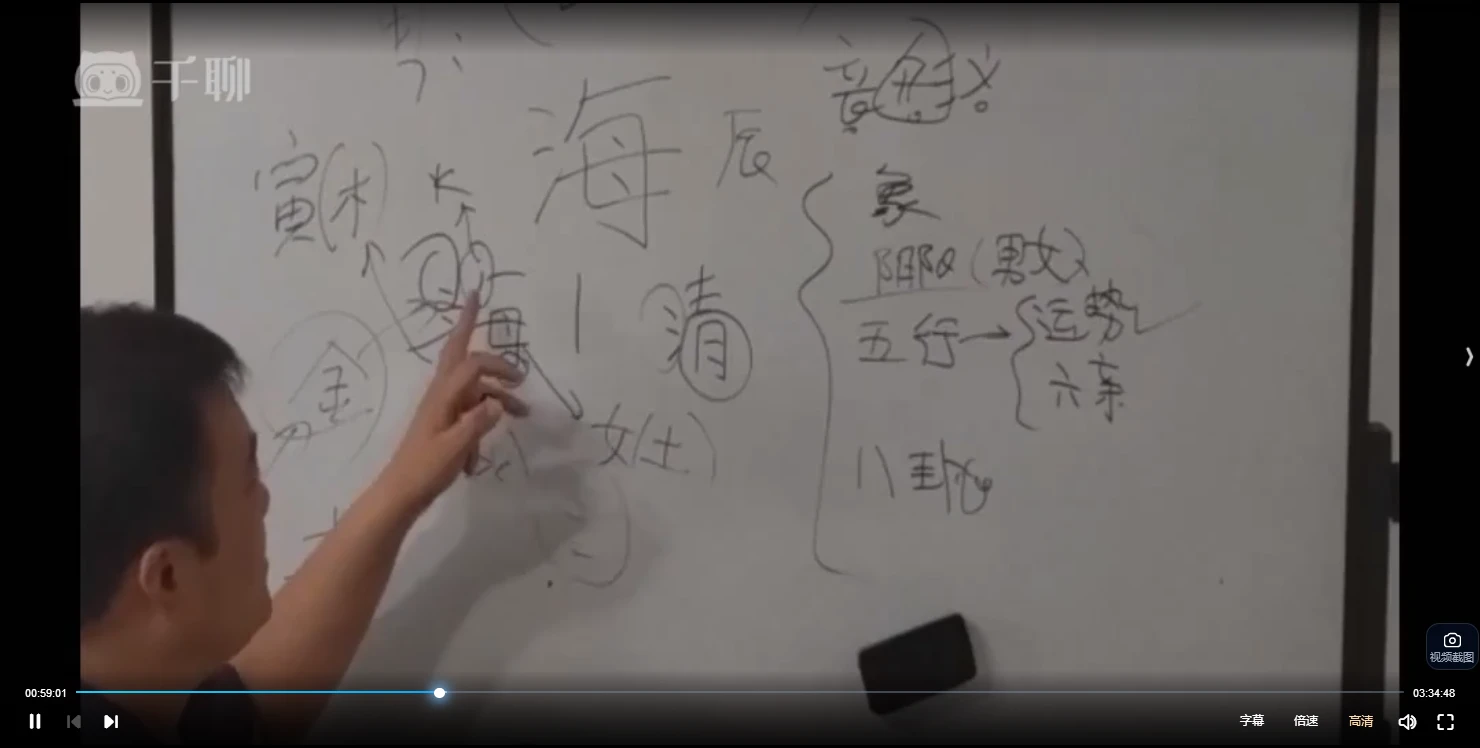 千聊
音 义
海
辰
寅(木)
水
象
阴阳(男女)
清
五行→
运势
六亲
金
女(土)
八卦
视频截图
00:59:01
03:34:48
字幕
倍速
高清